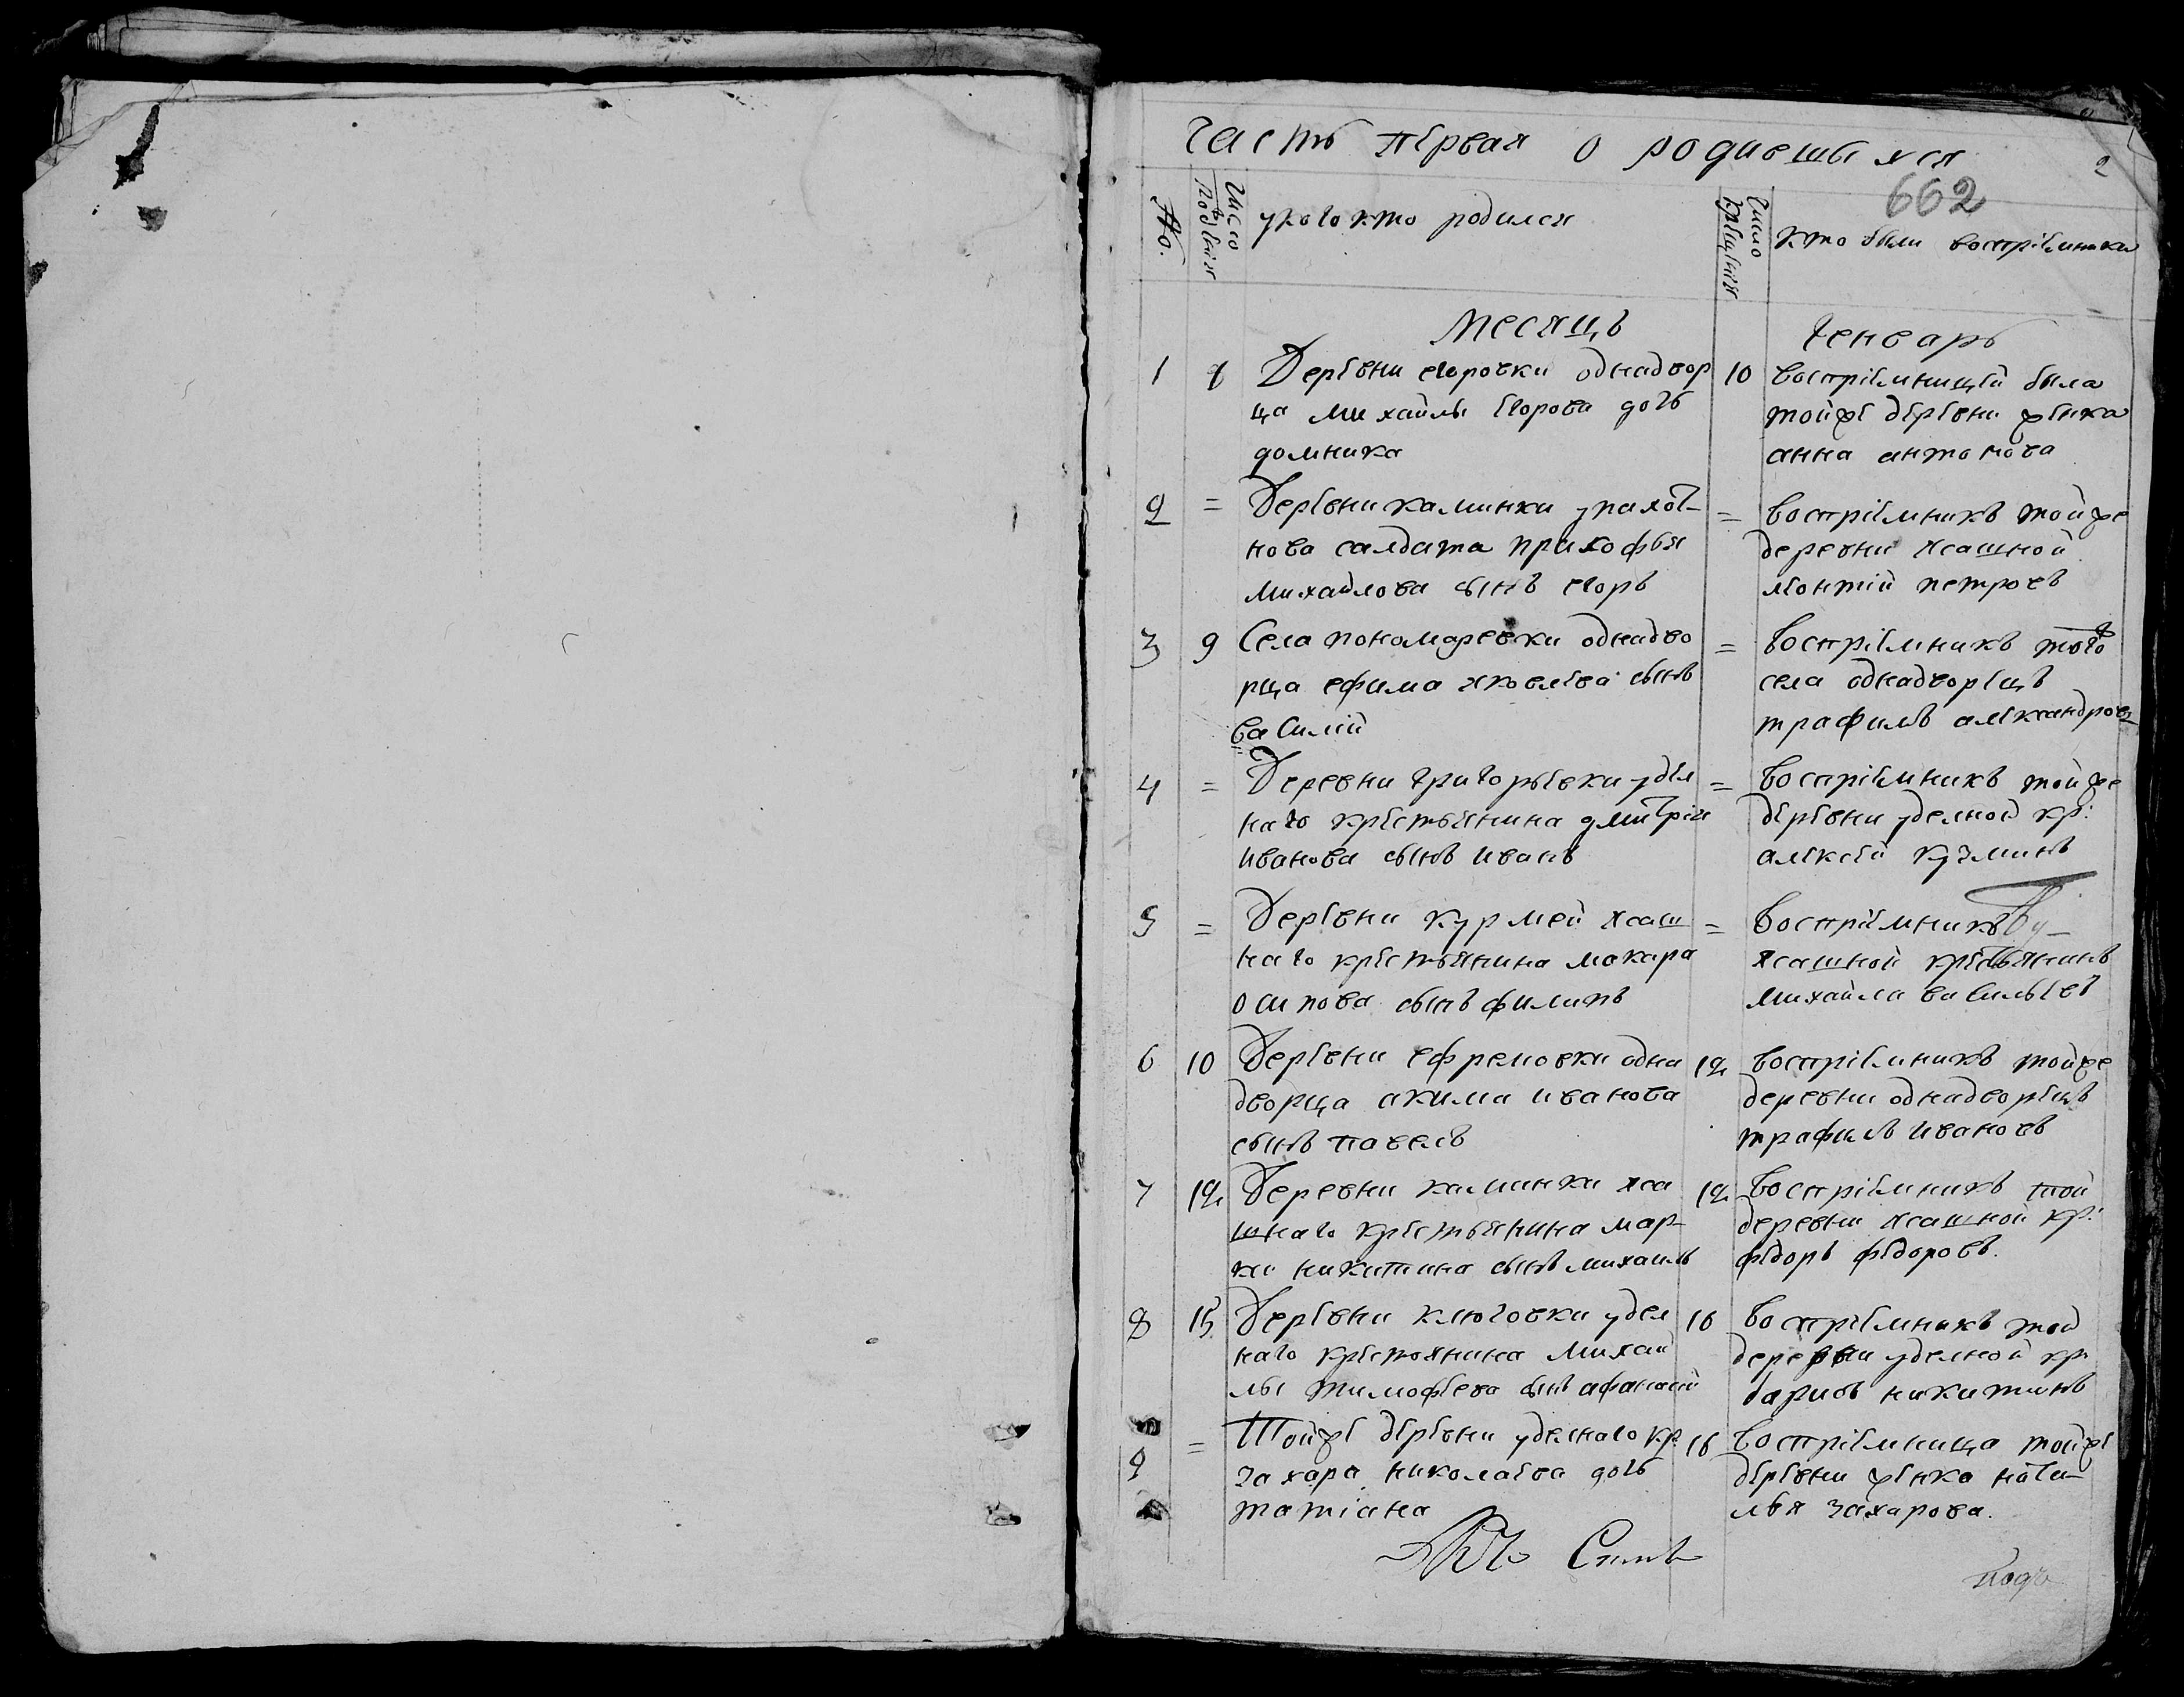 Часть первая о родившыхся
2
662
No.
Число рождения
у кого кто родился
Число крещения
кто были восприемники
Месяцъ Генварь
1
Деревни егоровки однадвор
ца михайлы егорова дочь
домника
10
восприемницей была
тойже деревни женка
анна антонова
2 =
Деревни калинки упахот-
нова салдата пракофья
михайлова сынъ егоръ
=
восприемникъ тойже
деревни ясашной
леонтий петровъ
3 9
Села пономаревки однадво
рца ефима яковлева сынъ
василий
=
восприемникъ того
села однадворецъ
трафимъ александровъ
4 =
Деревни григорьевки удел
наго крестьянина дмитрия
иванова сынъ иванъ
=
восприемникъ тойже
деревни уделной кр:
алексей кузминъ
5 =
Деревни курмей ясаш
наго крестьянина макара
осипова сынъ филипъ
=
восприемникъ
ясашной крестьянинъ
михайла васильевъ
6 10
Деревни ефремовки одна
дворца акима иванова
сынъ павелъ
12
восприемникъ тойже
деревни однадворецъ
трафимъ ивановъ
7 12
Деревни калинки яса
шнаго крестьянина мар-
ки никитина сынъ михаилъ
12
восприемникъ той
деревни ясашной кр:
федоръ федоровъ.
8 15
Деревни ключовки удел
наго крестьянина михай
лы тимофеева сынъ афанасий
16
восприемникъ той
деревни уделной кр
барисъ никитинъ
9 =
Тойже деревни уделнаго кр.
захара николаева дочь
татиана
16
восприемница тойже
деревни женка ната-
лья захарова.